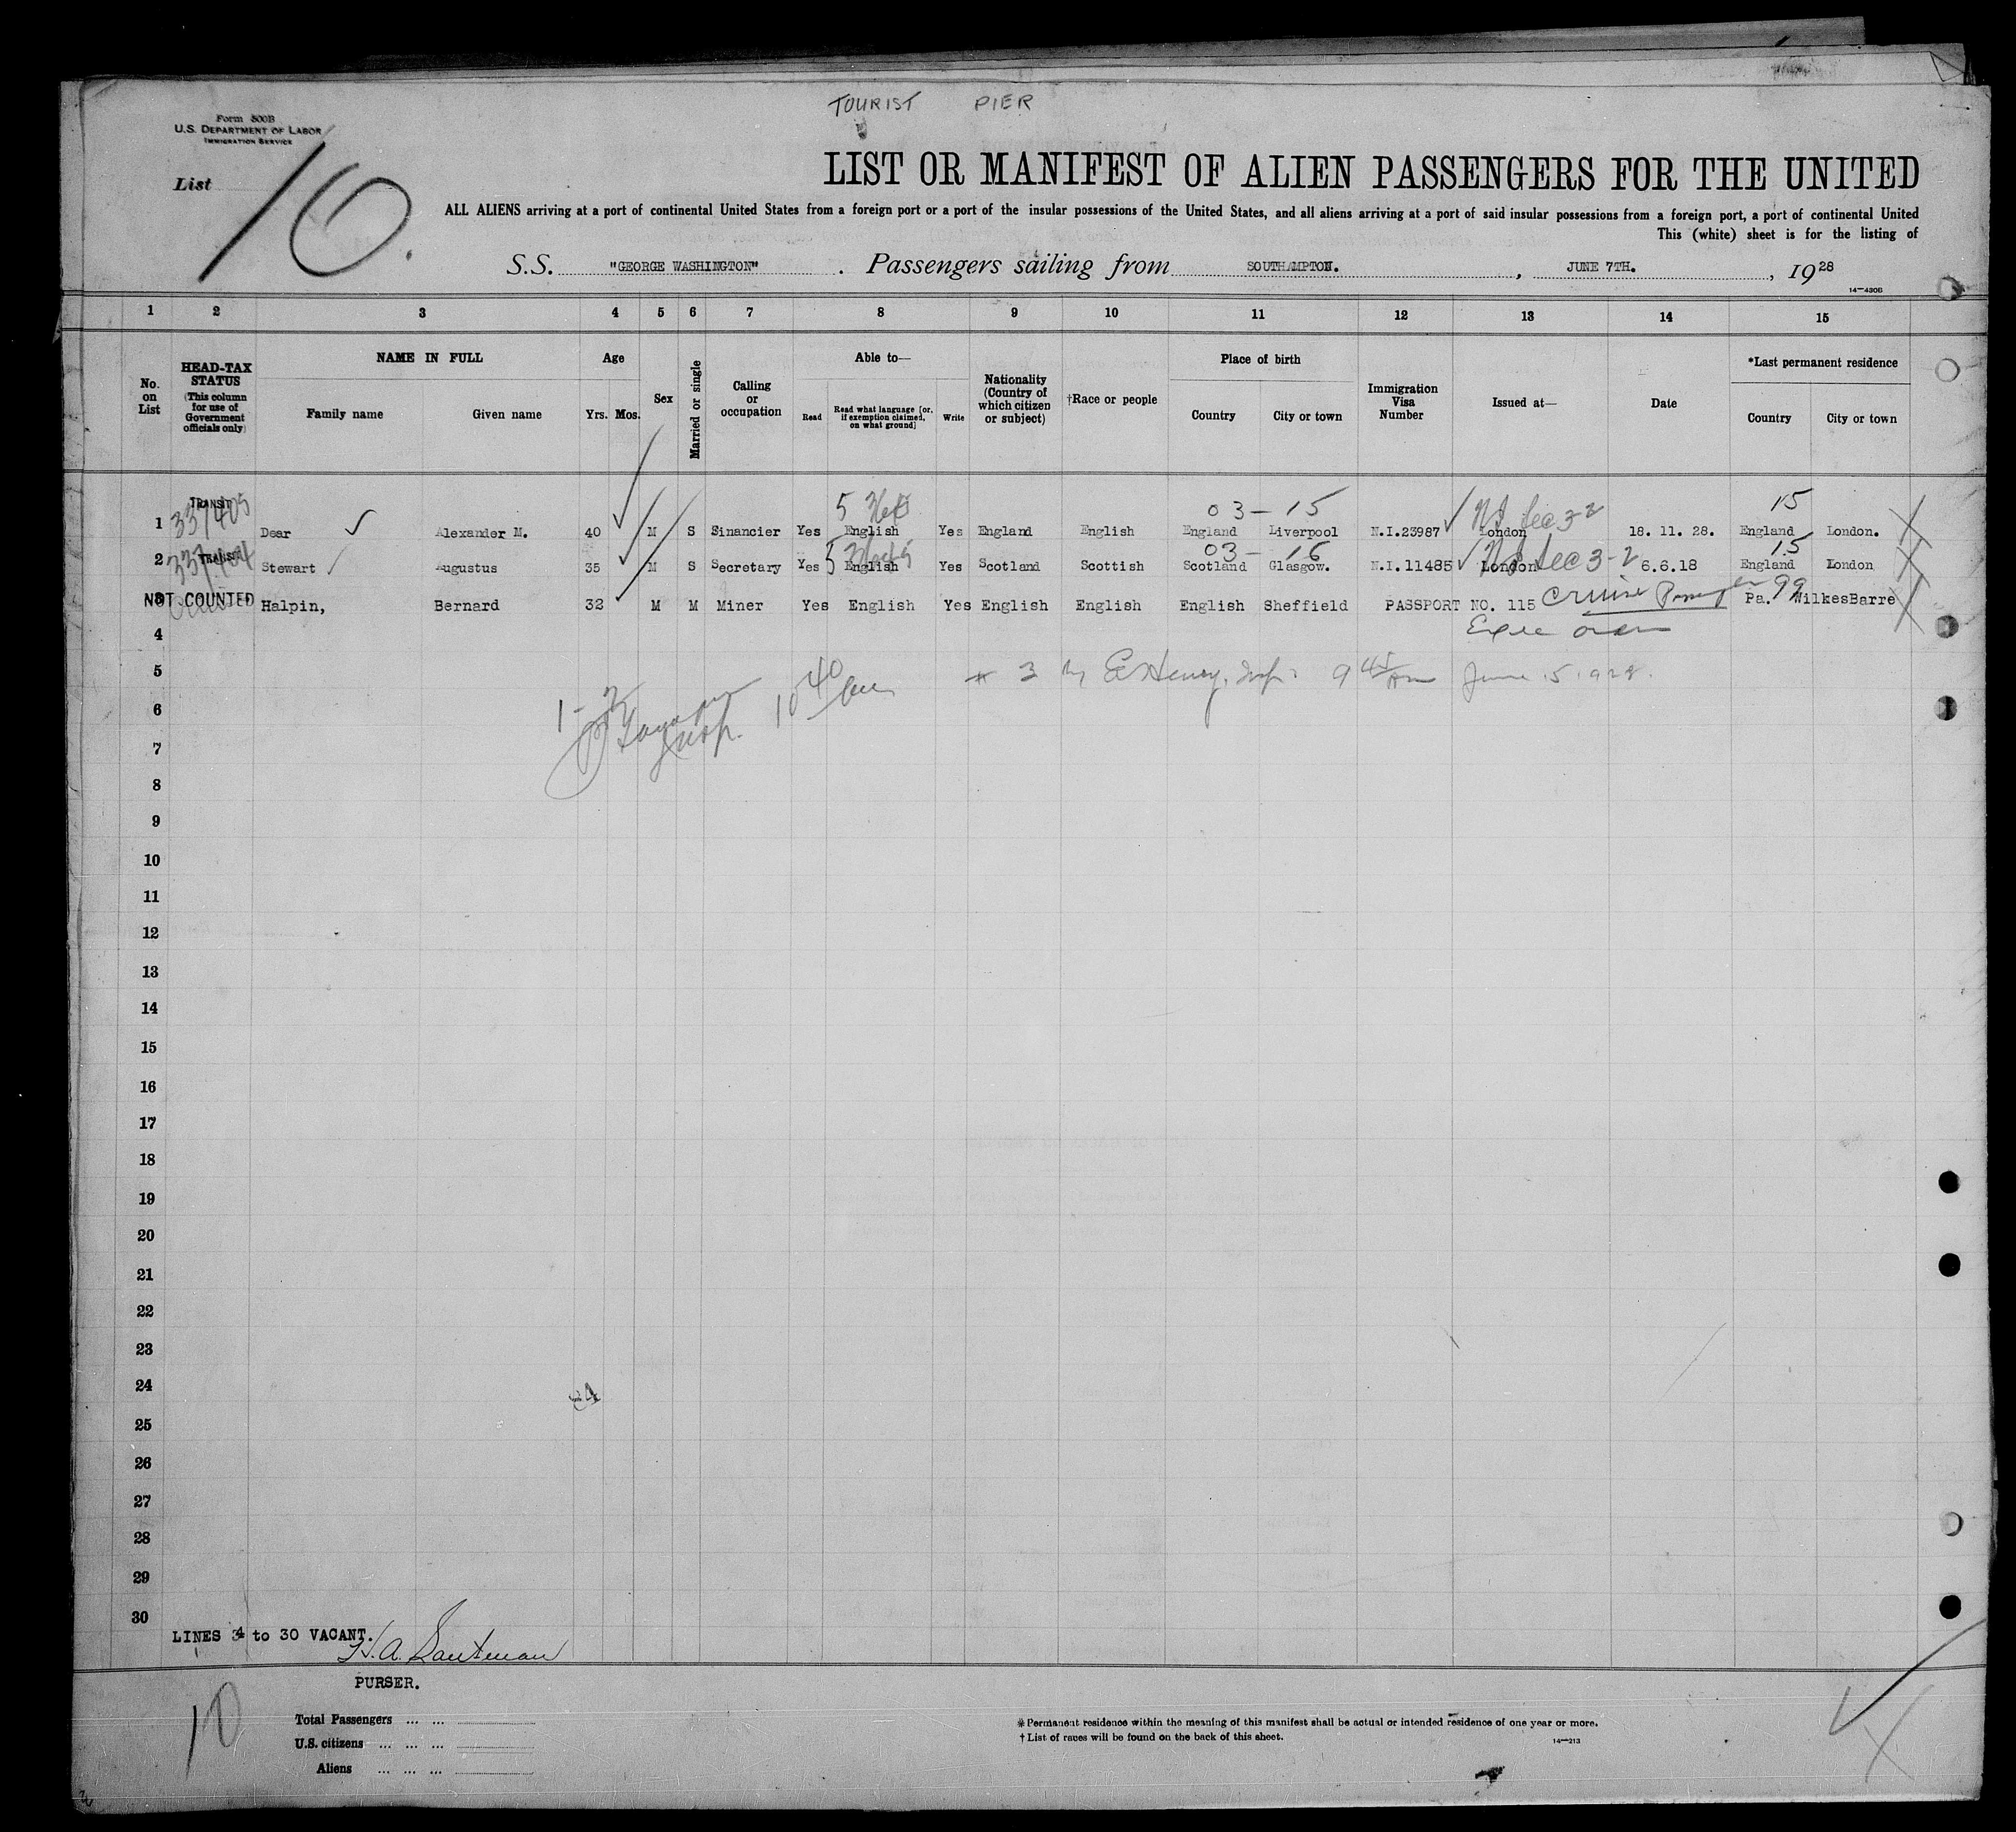 TOURIST PIER
Form 500B
U.S. DEPARTMENT OF LABOR
IMMIGRATION SERVICE
List 10.
LIST OR MANIFEST OF ALIEN PASSENGERS FOR THE UNITED
ALL ALIENS arriving at a port of continental United States from a foreign port or a port of the insular possessions of the United States, and all aliens arriving at a port of said insular possessions from a foreign port, a port of continental United
This (white) sheet is for the listing of
S.S. "GEORGE WASHINGTON". Passengers sailing from SOUTHAMPTON., JUNE 7TH., 1928
14—430B
1 2 3 4 5 6 7 8 9 10 11 12 13 14 15
No. on List
HEAD-TAX STATUS (This column for use of Government officials only)
NAME IN FULL
Family name Given name
Age
Yrs. Mos.
Sex
Married or single
Calling or occupation
Able to—
Read Read what language [or, if exemption claimed, on what ground] Write
Nationality (Country of which citizen or subject)
†Race or people
Place of birth
Country City or town
Immigration Visa Number
Issued at—
Date
*Last permanent residence
Country City or town
TRANSIT 5 03 – 15 15
1 Dear Alexander M. 40 M S Financier Yes English Yes England English England Liverpool N.I.23987 London Sec 3-2 18. 11. 28. England London.
TRANSIT 5 03 – 16 15
2 Stewart Augustus 35 M S Secretary Yes English Yes Scotland Scottish Scotland Glasgow. N.I.11485 London Sec 3-2 6.6.18 England London
3 NOT COUNTED Halpin, Bernard 32 M M Miner Yes English Yes English English English Sheffield PASSPORT NO. 115 Cruise Passenger Pa. 99 WilkesBarre
4
5 # 3 by E Henry, Insp. 9 45 Am June 5 1928.
6 1 - 2 Insp. 10 40 am
7
8
9
10
11
12
13
14
15
16
17
18
19
20
21
22
23
24
25
26
27
28
29
30
LINES 4 to 30 VACANT.
PURSER.
10
Total Passengers ... ...
U.S. citizens ... ... ...
Aliens ... ... ...
* Permanent residence within the meaning of this manifest shall be actual or intended residence of one year or more.
† List of races will be found on the back of this sheet.
14—213